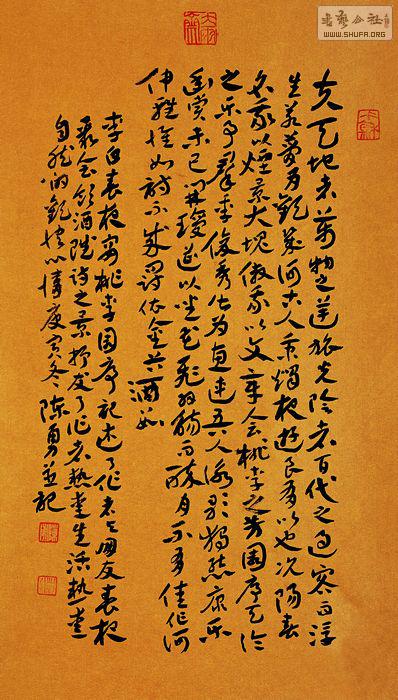 夫天地者萬物之逆旅光陰者百代之過客而浮
生若夢為歡幾何古人秉燭夜遊良有以也況陽春
召我以煙景大塊假我以文章會桃李之芳園序天倫
之樂事群季俊秀皆為惠連吾人詠歌獨慚康樂
幽賞未已開瓊筵以坐花飛羽觴而醉月不有佳作何
伸雅懷如詩不成罰依金谷酒數
李白春夜宴桃李園序記述了作者與朋友春夜
聚會飲酒賦詩之景抒發了作者熱愛生活熱愛
自然的歡快心情庚寅冬陳勇並記
WWW.SHUFA.ORG